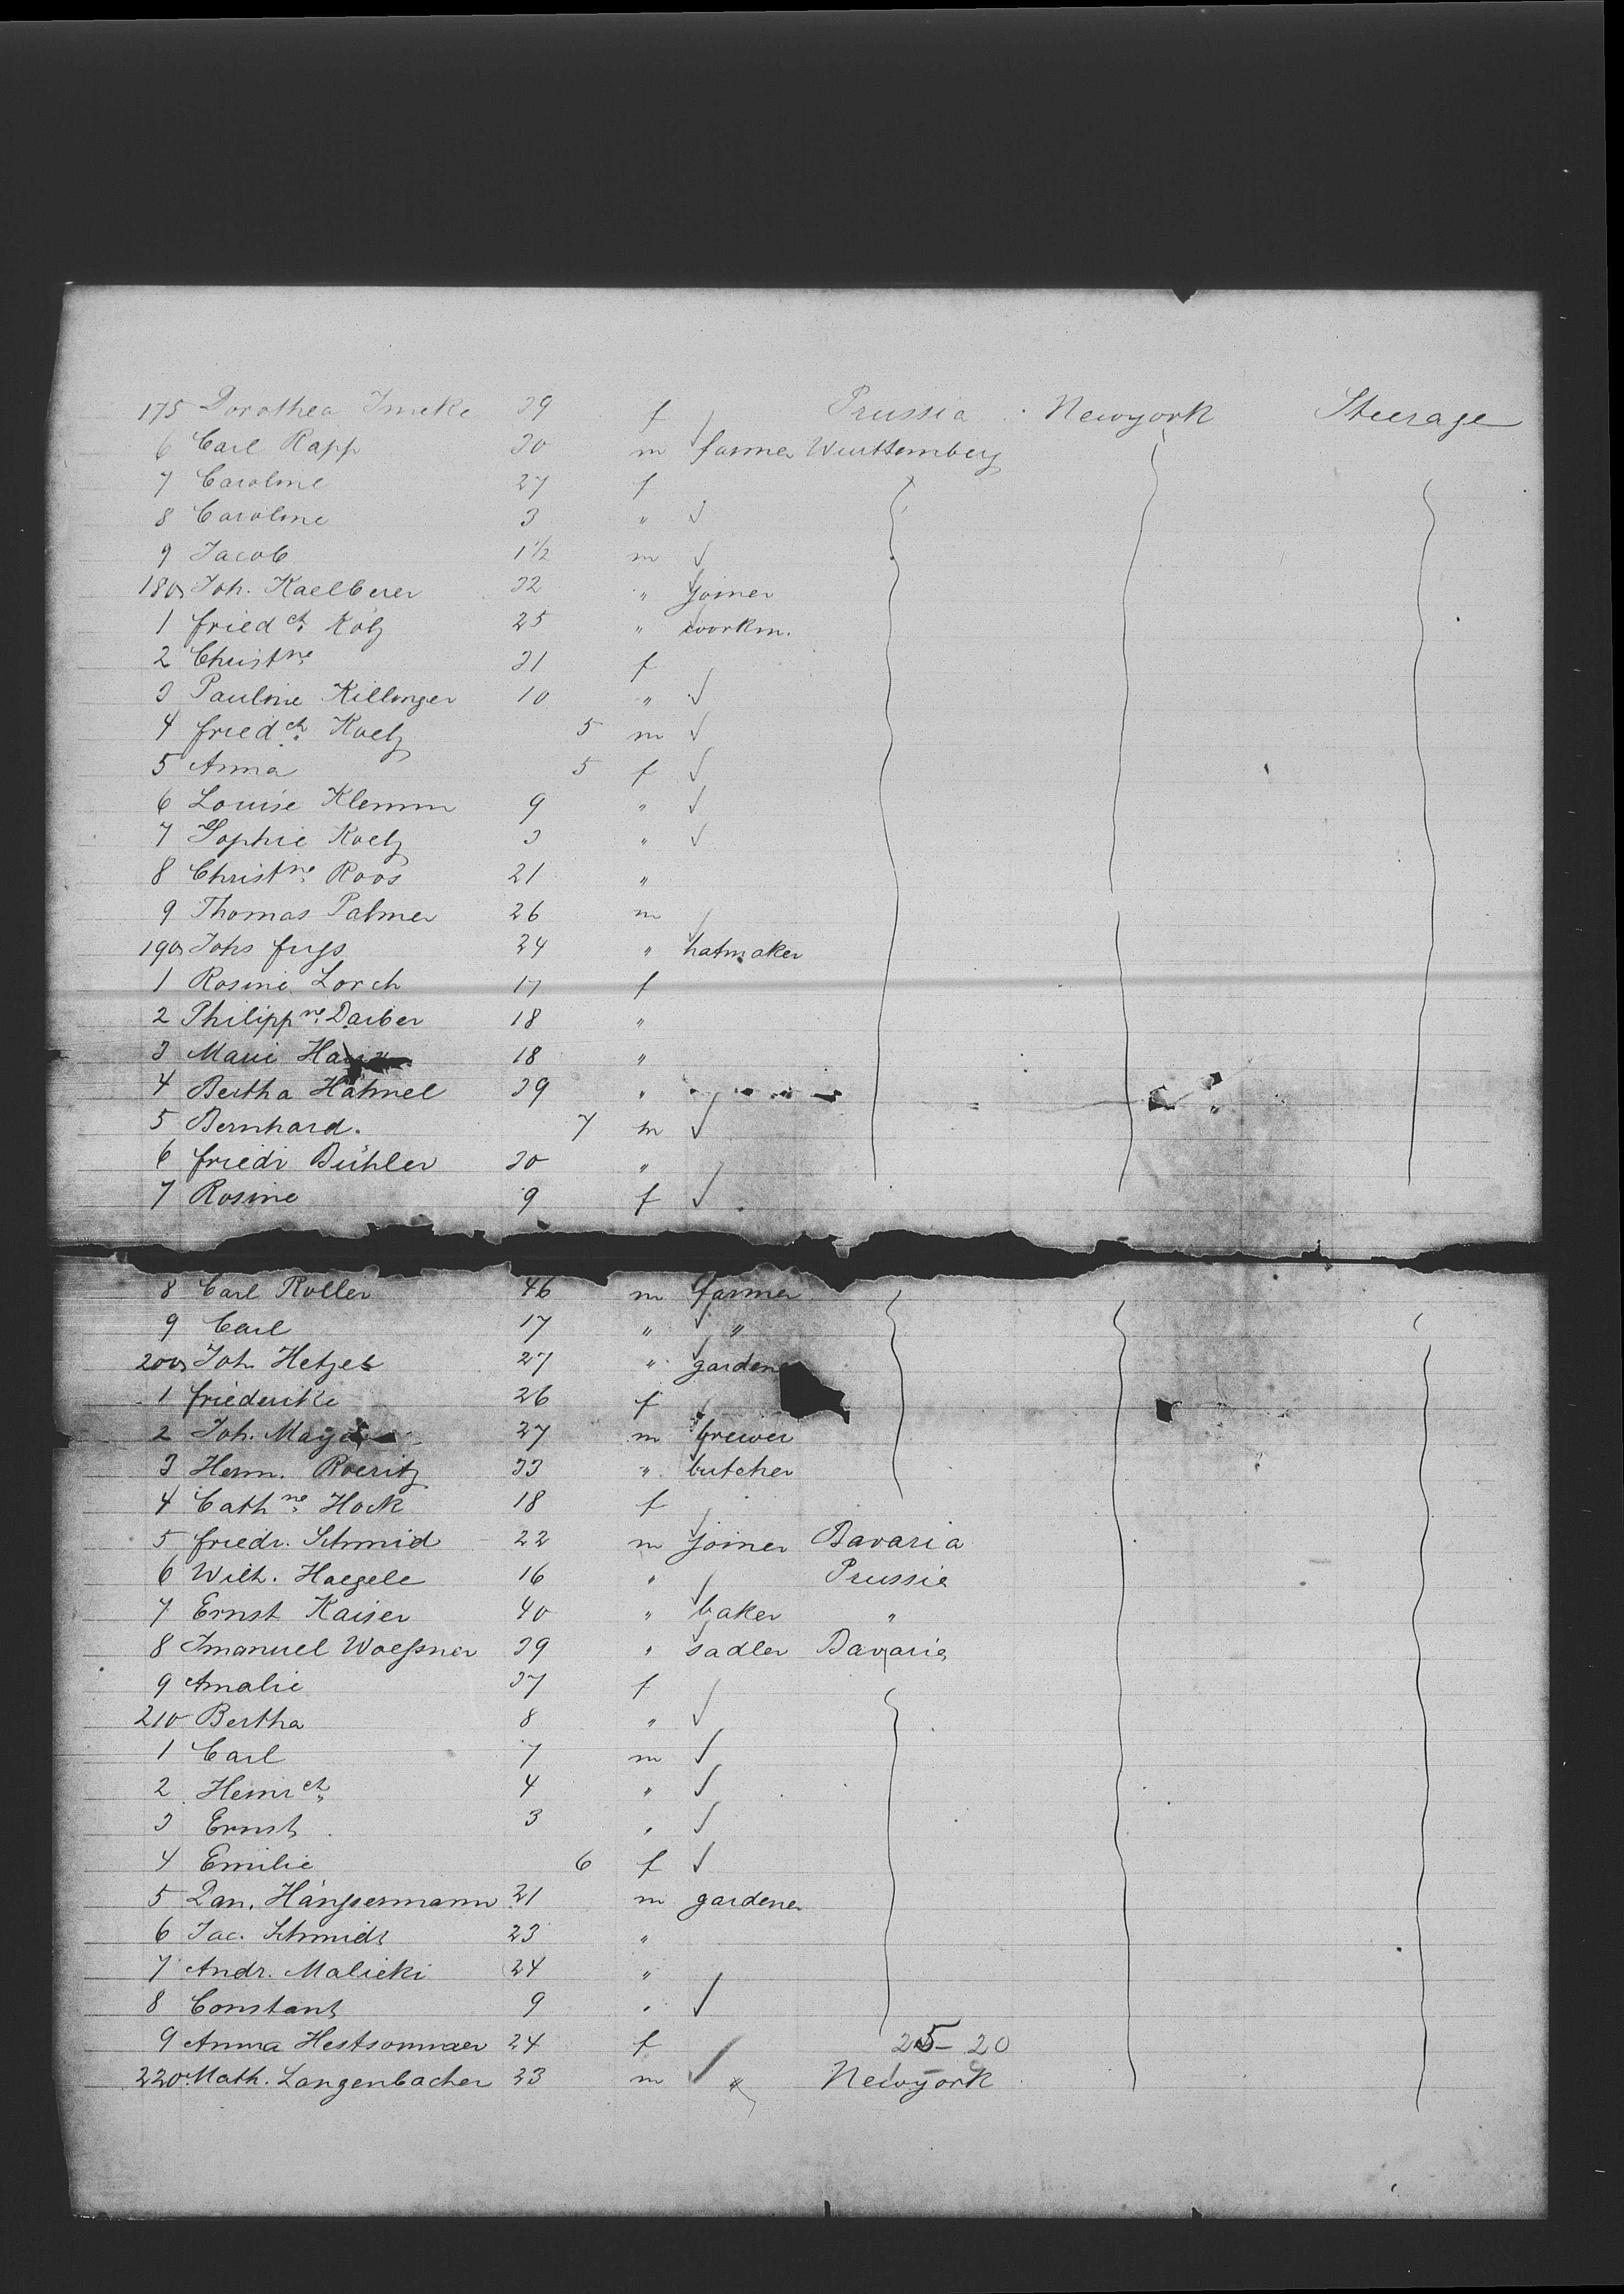 175 Dorothea Imeke 39 f Prussia Newyork Steerage
6 Carl Rapp 30 m farmer Wurttemberg
7 Caroline 27 f
8 Caroline 3 " ✓
9 Jacob 1 1/2 m ✓
180 Joh. Kaelberer 32 " joiner
1 Friedch Kolz 25 " workm.
2 Christne 31 f
3 Pauline Killinger 10 " ✓
4 Friedch Koelz 5 m ✓
5 Anna 5 f ✓
6 Louise Klemm 9 " ✓
7 Sophie Koelz 3 " ✓
8 Christne Roos 21 "
9 Thomas Palmer 26 m
190 Johs 24 " hatmaker
1 Rosine Lorch 17 f
2 Philippne Daiber 18 "
3 Marie 18 "
4 Bertha Hähnel 39 "
5 Bernhard. 7 m ✓
6 Friedr Bühler 30 "
7 Rosine 9 f ✓
8 Carl Roller 46 m farmer
9 Carl 17 " "
200 Joh. Hetzel 27 " gardener
1 Friederike 26 f
2 Joh. 27 m brewer
3 Herm. Roeritz 33 " butcher
4 Cathne Hock 18 f
5 Friedr. Schmid 22 m joiner Bavaria
6 Wilh. Haegele 16 " Prussia
7 Ernst Kaiser 40 " baker "
8 Imanuel Woessner 39 " sadler Bavaria
9 Amalie 37 f
210 Bertha 8 " ✓
1 Carl 7 m ✓
2 Heinrch 4 " ✓
3 Ernst 3 " ✓
4 Emilie 6 f ✓
5 Dan. Hängsermann 21 m gardener
6 Jac. Schmidt 23 "
7 Andr. Malicki 24 "
8 Constant 9 " ✓
9 Anna 24 f 25-20
220 Math. Langenbacher 33 m ✓ " Newyork